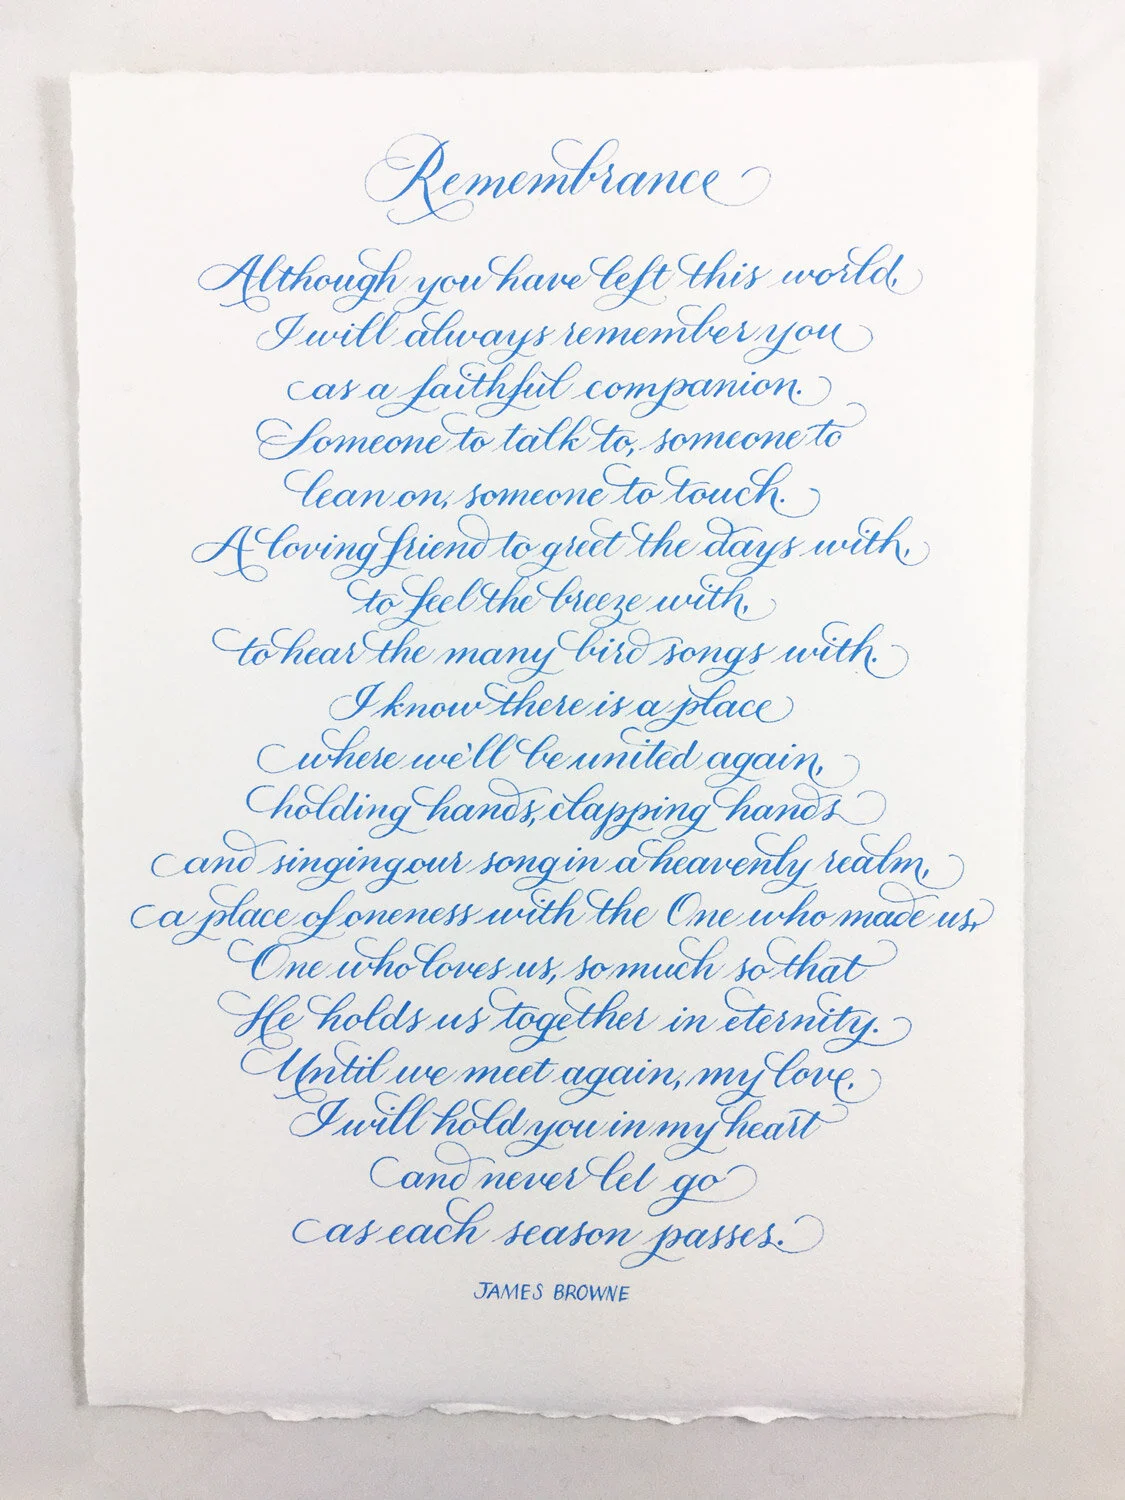 Remembrance
Although you have left this world,
I will always remember you
as a faithful companion.
Someone to talk to, someone to
lean on, someone to touch.
A loving friend to greet the days with,
to feel the breeze with,
to hear the many bird songs with.
I know there is a place
where we'll be united again,
holding hands, clapping hands
and singing our song in a heavenly realm,
a place of oneness with the One who made us,
One who loves us, so much so that
He holds us together in eternity.
Until we meet again, my love,
I will hold you in my heart
and never let go
as each season passes.
JAMES BROWNE